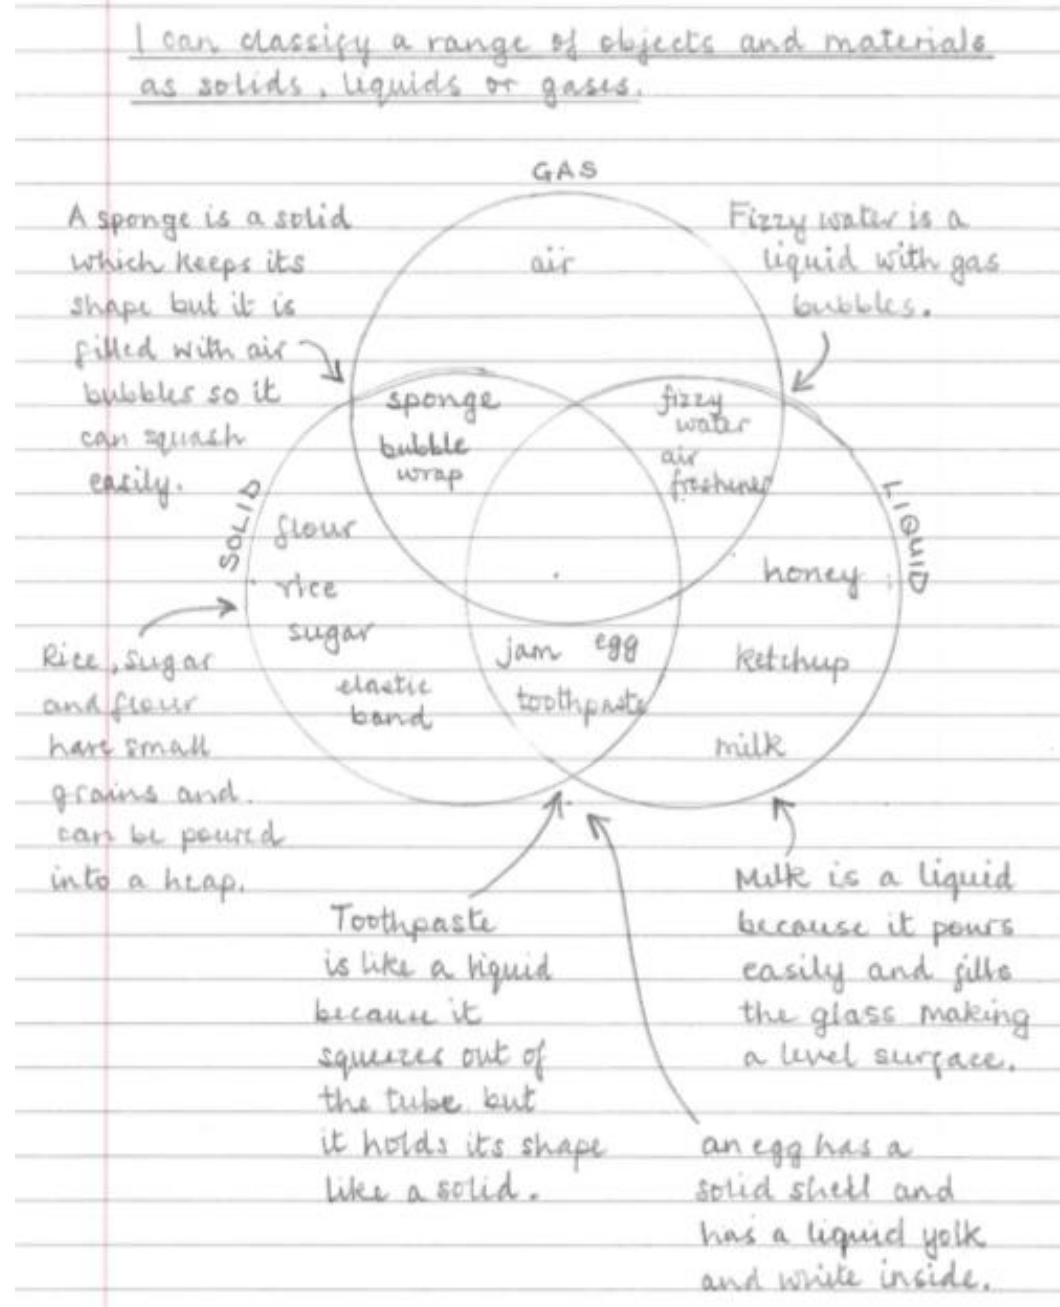 I can classify a range of objects and materials
as solids, liquids or gases.
GAS
A sponge is a solid
which keeps its
shape but it is
filled with air
bubbles so it
can squash
easily.
Fizzy water is a
liquid with gas
bubbles.
air
sponge
bubble
wrap
fizzy
water
air
freshener
SOLID
LIQUID
flour
rice
sugar
elastic
band
jam egg
toothpaste
honey
ketchup
milk
Rice, sugar
and flour
have small
grains and.
can be poured
into a heap.
Toothpaste
is like a liquid
because it
squeezes out of
the tube but
it holds its shape
like a solid.
Milk is a liquid
because it pours
easily and fills
the glass making
a level surface.
an egg has a
solid shell and
has a liquid yolk
and white inside.